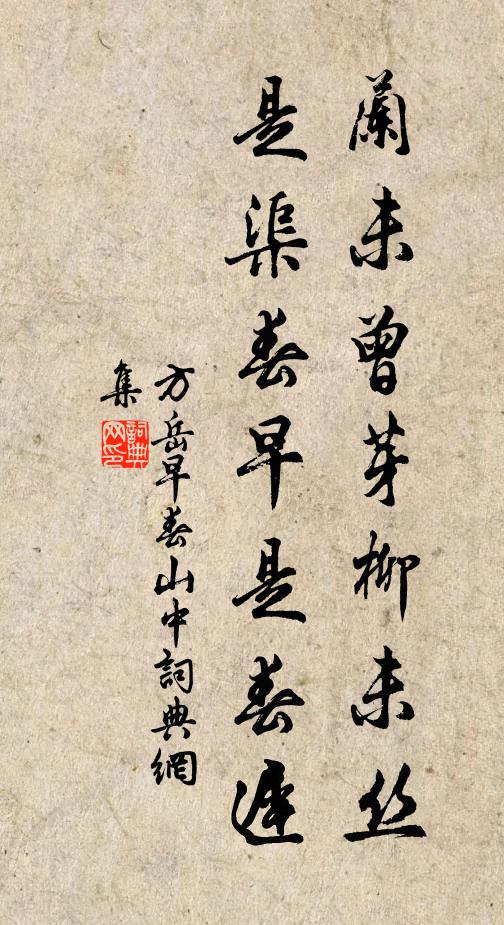 蘭未曾芽柳未丝
是渠春早是春遲
方岳早春山中詞典網
集
詞典
网印